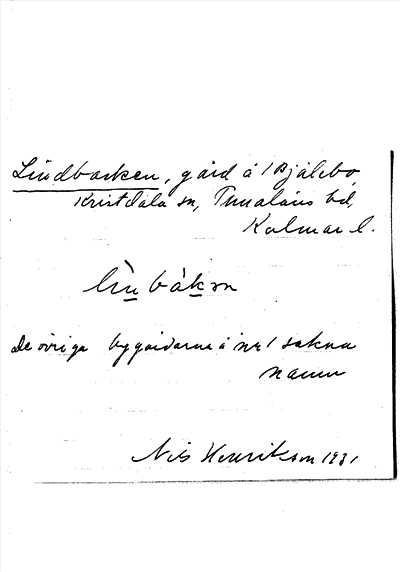 Lindbacken, gård å 1 Bjälebo
Kristdala sn, Tunaläns hd,
Kalmar l.
lìn bák ən
De övriga bygårdarna å nr 1 sakna
namn
Nils Henrikson 1931